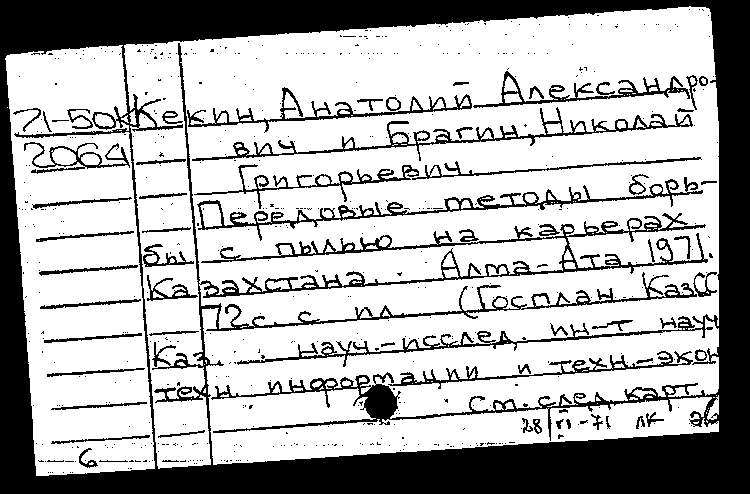 71-50к Кекин, Анатолий Александро-
2064 вич и Брагин, Николай
Григорьевич.
Передовые методы борь-
бы с пылью на карьерах
Казахстана. Алма-Ата, 1971.
72с. с ил. (Госплан КазСС
Каз. науч.-исслед. ин-т науч
техн. информации и техн.-экон
См. след. карт.
28/VI-71 ЛК
6